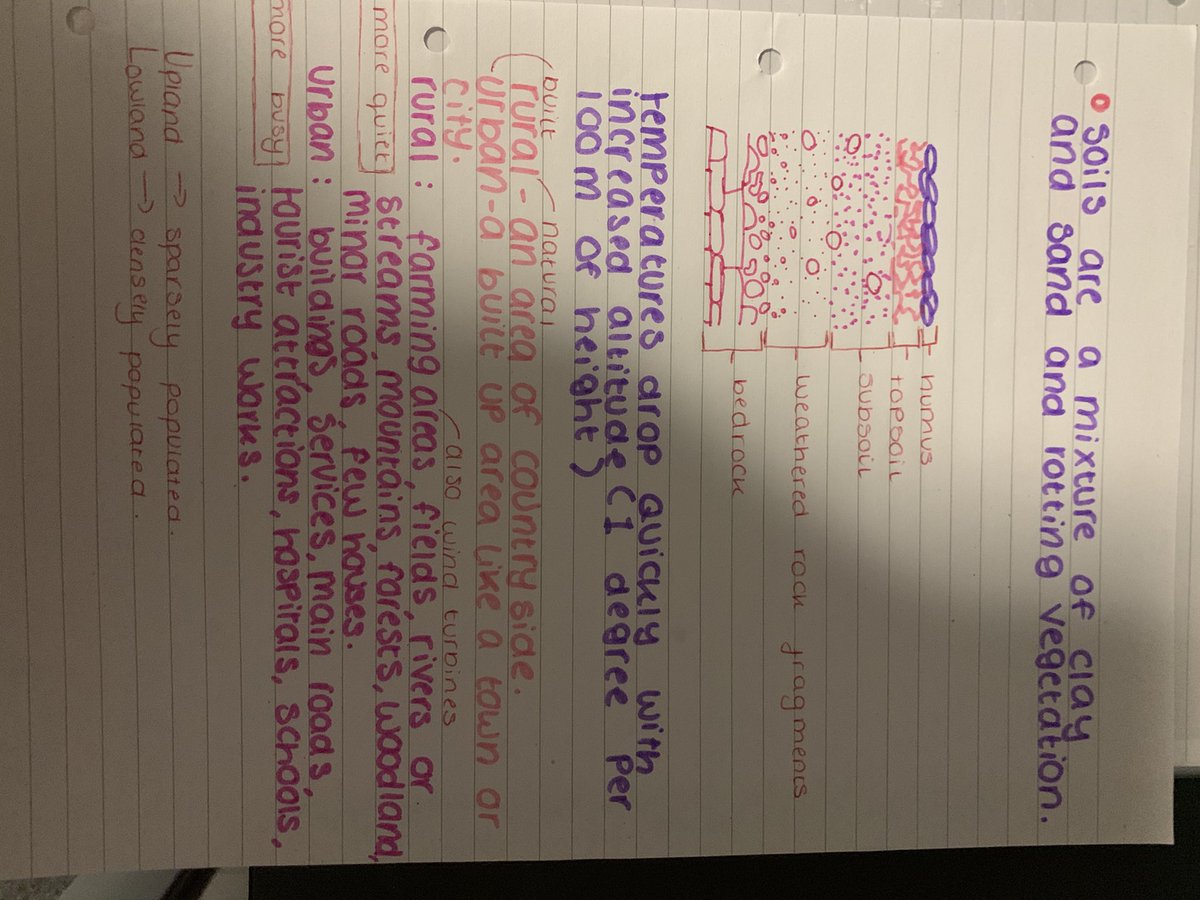 Soils are a mixture of clay
and sand and rotting vegetation.
humus
topsoil
subsoil
weathered rock fragments
bedrock
temperatures drop quickly with
increased altitude (1 degree per
100m of height)
natural
rural - an area of countryside.
built
urban - a built up area like a town or
city.
also wind turbines
rural : farming areas, fields, rivers or
more quiet
streams, mountains, forests, woodland,
minor roads, few houses.
urban : buildings, services, main roads,
more busy
tourist attractions, hospitals, schools,
industry works.
Upland → sparsely populated.
Lowland → densely populated.